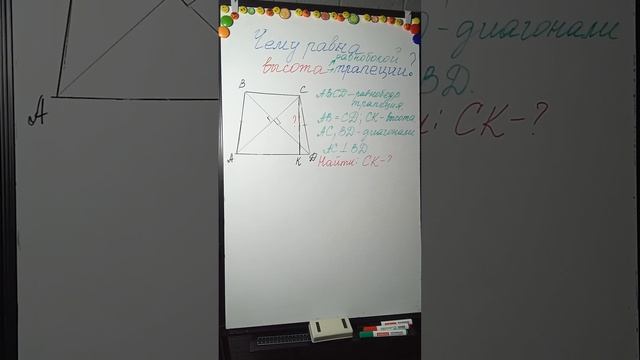 Чему равна
равнобокой
высота трапеции?
B
C
?
A
K
D
ABCD - равнобед.
трапеция.
AB = CD; CK - высота
AC, BD - диагонали
AC ⊥ BD
Найти: CK - ?
A
D - диагонали
BD.
и: CK - ?